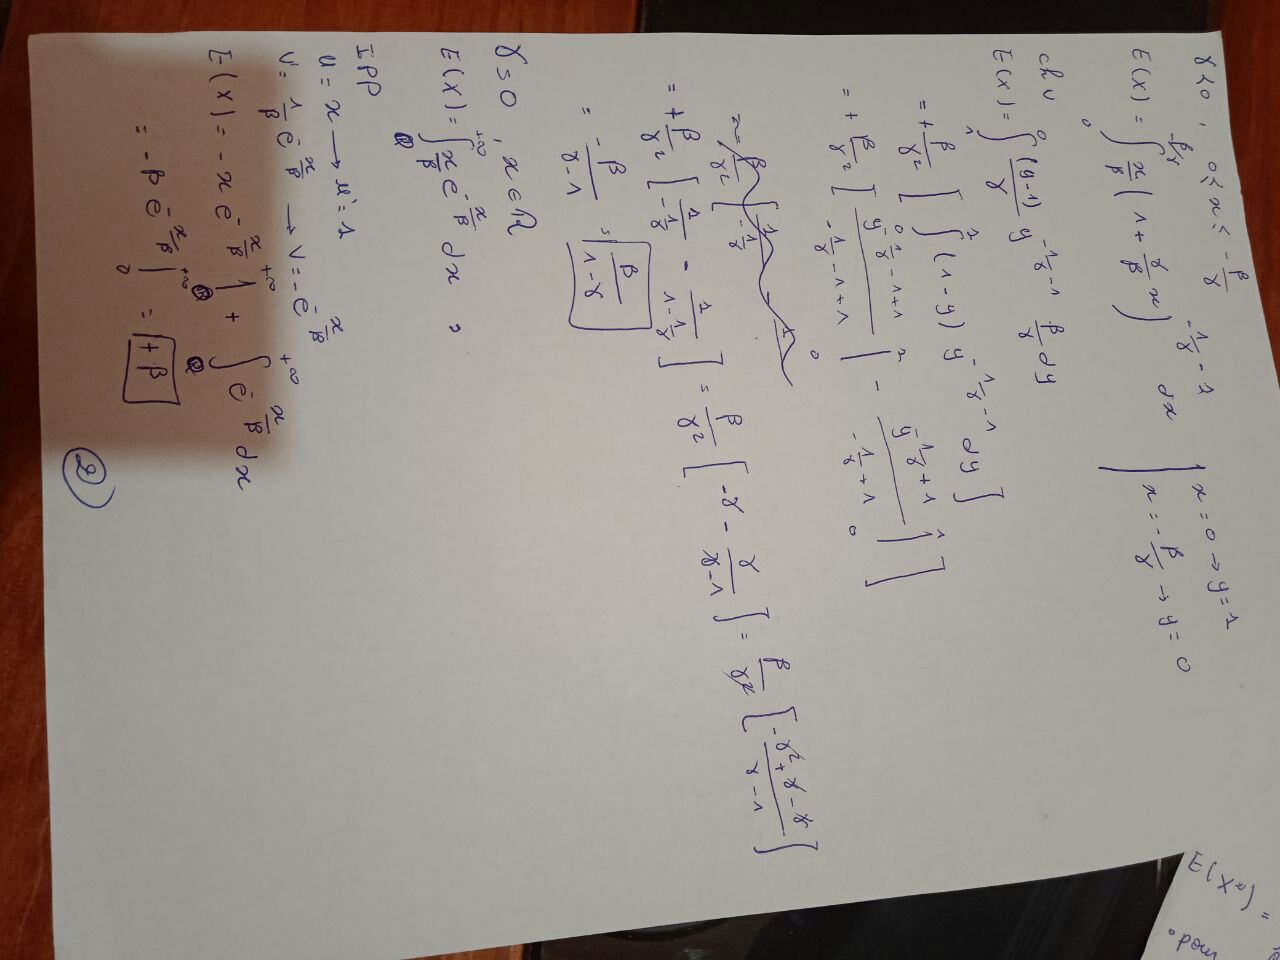 γ<0, 0≤x≤ -β/γ
E(X) = ∫_0^{-β/γ} x/β (1 + γ/β x)^{-1/γ - 1} dx | x=0 → y=1
x = -β/γ → y=0
ch v
E(X) = ∫_1^0 (y-1)/γ y^{-1/γ - 1} β/γ dy
= + β/γ² [ ∫_0^1 (1-y) y^{-1/γ - 1} dy ]
= + β/γ² [ y^{-1/γ - 1 + 1}/(-1/γ - 1 + 1) |_0^1 - y^{-1/γ + 1}/(-1/γ + 1) |_0^1 ]
= + β/γ² [ 1/(-1/γ) - 1/(1 - 1/γ) ] = β/γ² [ -γ - γ/(γ-1) ] = β/γ² [ (-γ² + γ - γ)/(γ-1) ]
= -β/(γ-1) = β/(1-γ)
γ=0, x∈ℝ
E(X) = ∫_0^{+∞} x/β e^{-x/β} dx =
IPP
u = x → u' = 1
v' = 1/β e^{-x/β} → v = -e^{-x/β}
E(X) = -x e^{-x/β} |_0^{+∞} + ∫_0^{+∞} e^{-x/β} dx
= -β e^{-x/β} |_0^{+∞} = +β
2
E(X) =
mod.